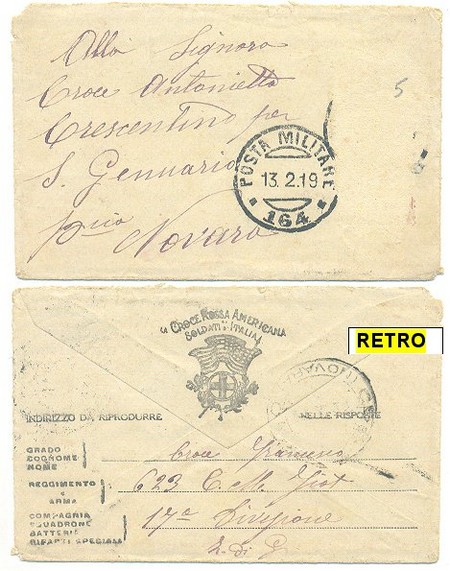 Alla Signora
Croce Antonietta
Crescentino per
S. Genuario
pcia Novara
5
POSTA MILITARE
13.2.19
164
LA CROCE ROSSA AMERICANA
SOLDATI D'ITALIA
RETRO
INDIRIZZO DA RIPRODURRE NELLE RISPOSTE
GRADO
COGNOME
NOME
Croce Francesco
REGGIMENTO
E
ARMA
623 C. M. Fiat
COMPAGNIA
SQUADRONE
BATTERIA
RIPARTI SPECIALI
17a Divisione
Z. di G.